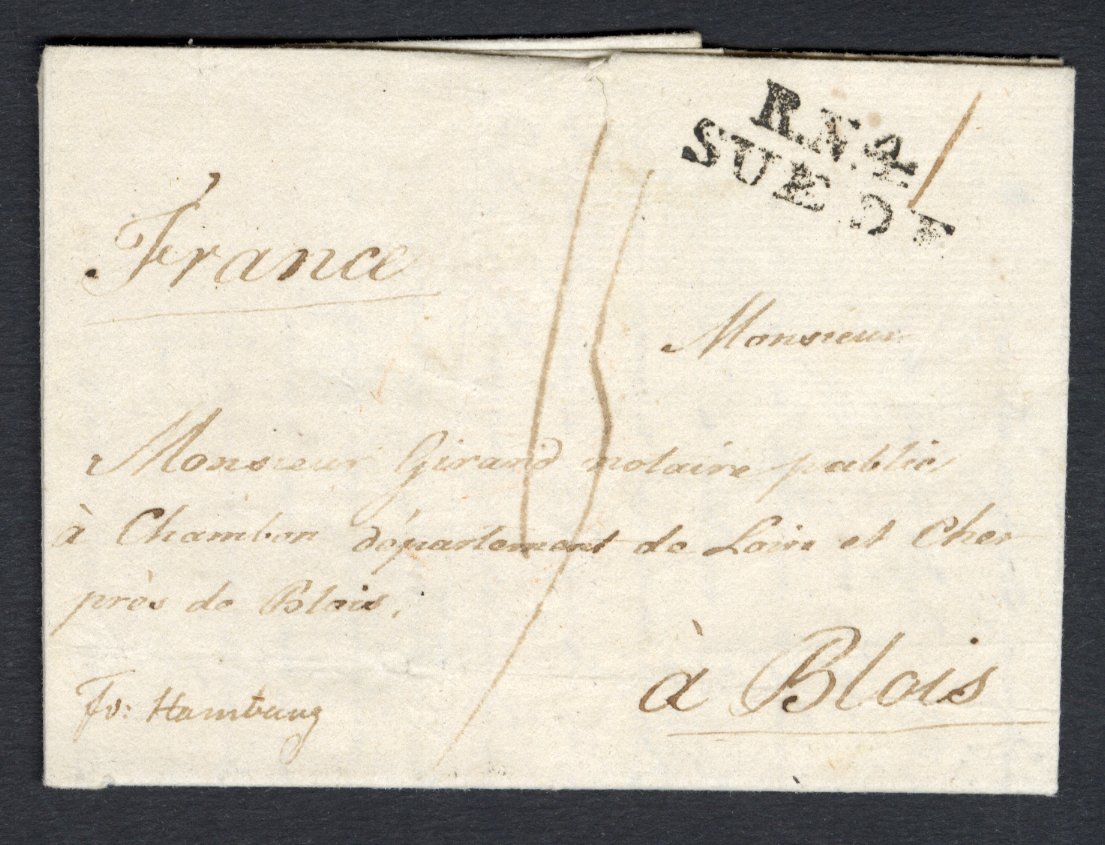 R.N.4
SUEDE
France
Monsieur
Monsieur Girand notaire public
à Chambon département de Loire et Cher
près de Blois.
à Blois
fo: Hamburg